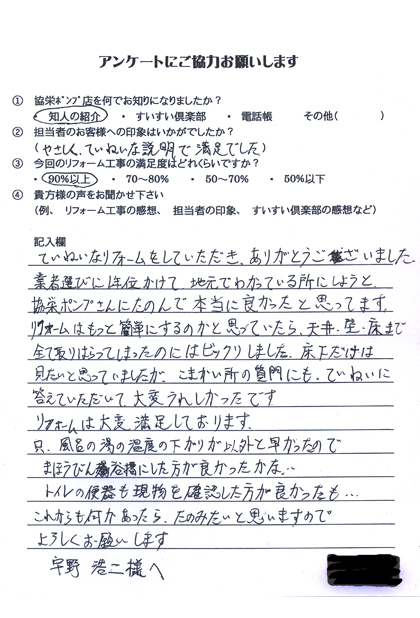 アンケートにご協力お願いします
① 協栄ポンプ店を何でお知りになりましたか?
・知人の紹介 ・すいすい倶楽部 ・電話帳 その他( )
② 担当者のお客様への印象はいかがでしたか?
(やさしく、ていねいな説明で満足でした)
③ 今回のリフォーム工事の満足度はどれくらいですか?
・90%以上 ・70〜80% ・50〜70% ・50%以下
④ 貴方様の声をお聞かせ下さい
(例、リフォーム工事の感想、担当者の印象、すいすい倶楽部の感想など)
記入欄
ていねいなリフォームをしていただき、ありがとうございました。
業者選びに1年位かけて、地元でわかっている所にしようと、
協栄ポンプさんにたのんで本当に良かったと思ってます。
リフォームはもっと簡単にするのかと思っていたら、天井・壁・床まで
全て取りはらってしまったのにはビックリしました。床下だけは
見たいと思っていましたが、こまかい所の質問にも、ていねいに
答えていただいて大変うれしかったです
リフォームは大変満足しております。
只、風呂の湯の温度の下がりが以外と早かったので
まほうびん浴槽にした方が良かったかな…
トイレの便器も現物を確認した方が良かったも…
これからも何かあったら、たのみたいと思いますので
よろしくお願いします
宇野 浩二様へ